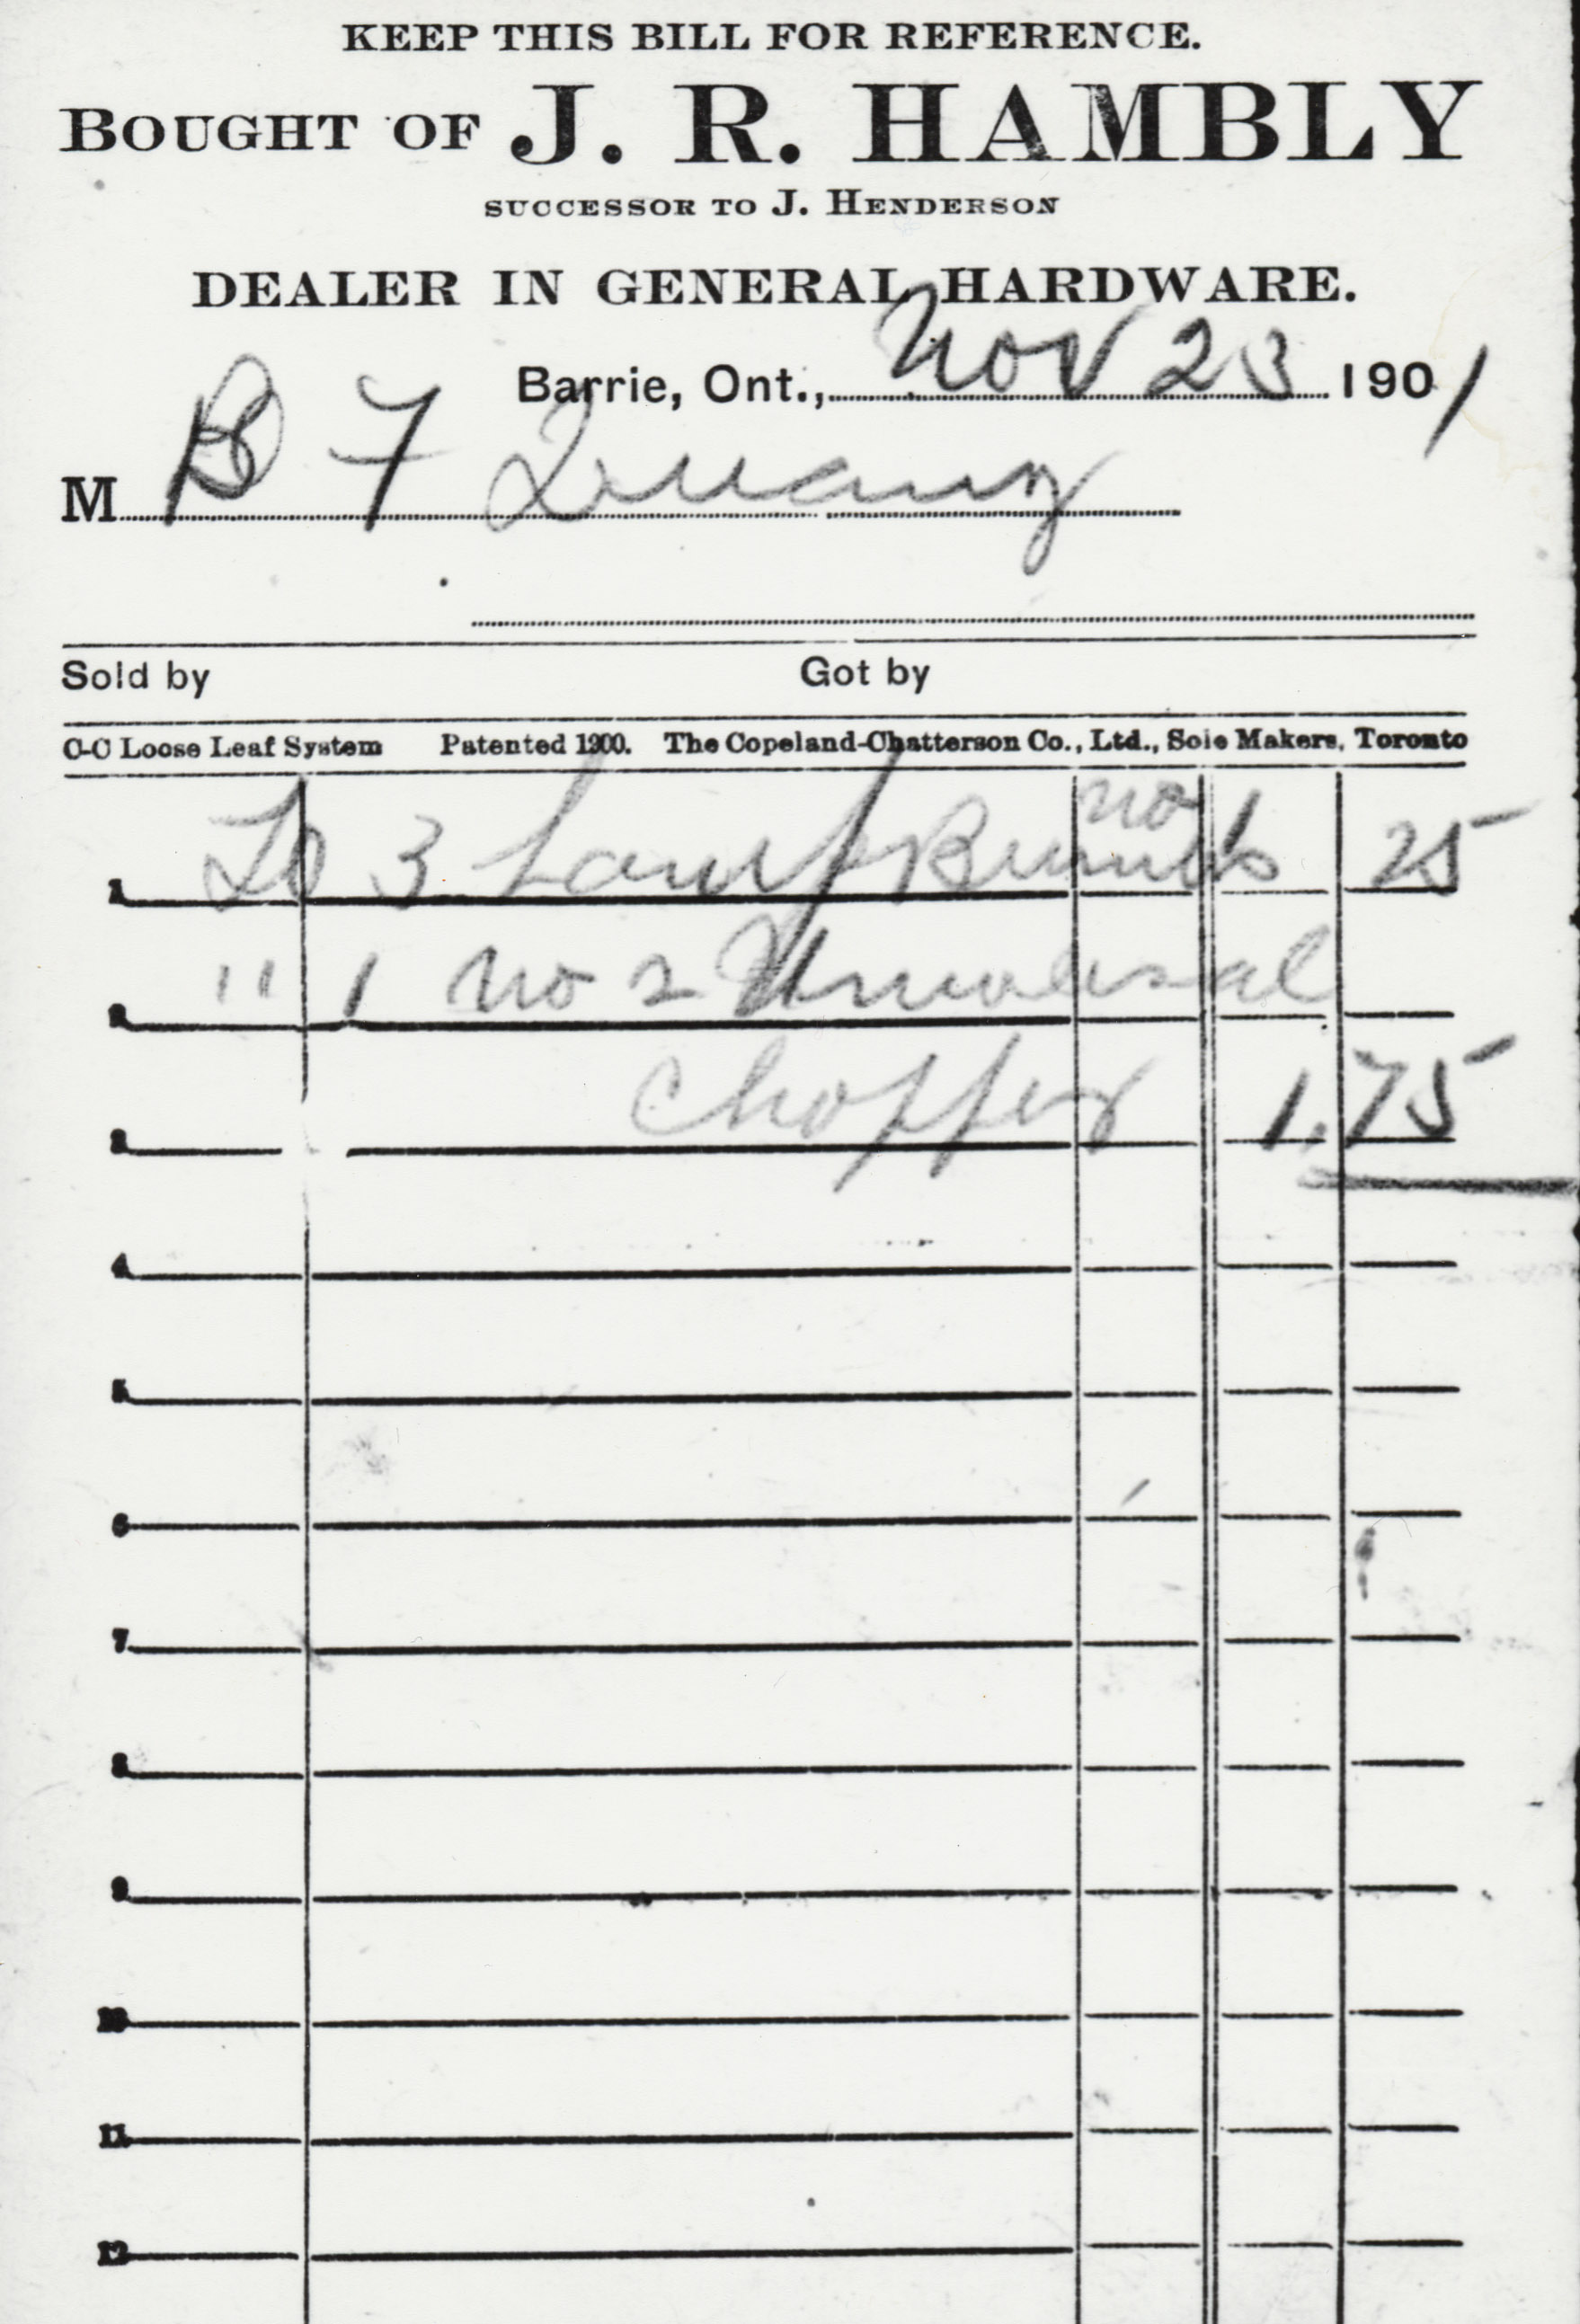 KEEP THIS BILL FOR REFERENCE.
BOUGHT OF J. R. HAMBLY
SUCCESSOR TO J. HENDERSON
DEALER IN GENERAL HARDWARE.
Barrie, Ont., Nov 23 1901
M B F
Sold by Got by
C-C Loose Leaf System Patented 1900. The Copeland-Chatterson Co., Ltd., Sole Makers, Toronto
no 1
1 To 3 Lamp Burners 25
2 " 1 no 2 Universal
3 Chopper 1.75
4
5
6
7
8
9
10
11
12